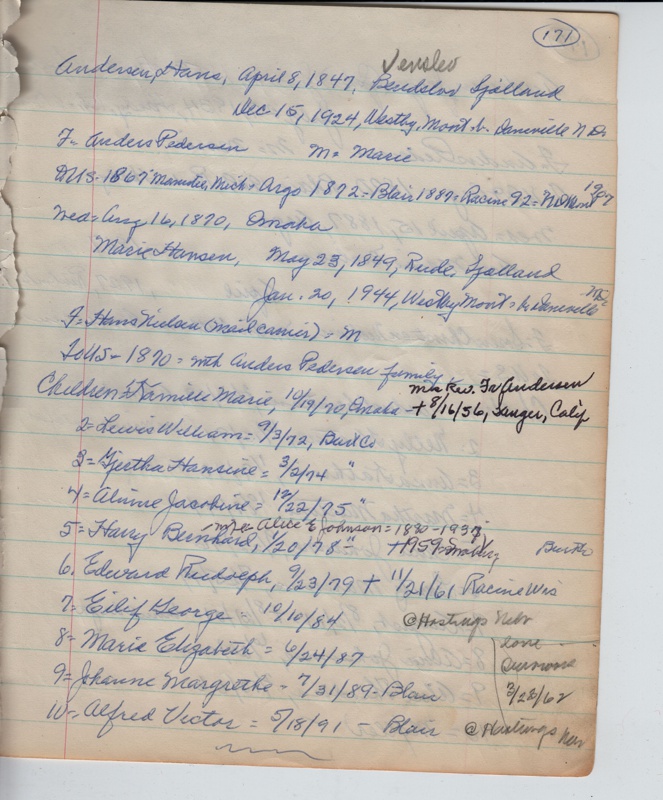 171
Jerslev
Andersen, Hans, April 8, 1847, Bendslov Sjælland
Dec 15, 1924, Westby, Mont. b. Daneville N.D.
F= Anders Pedersen M= Marie
To US- 1867 Manistee, Mich = Argo 1872 = Blair 1889 = Racine 92 = N.D. Mont 1907
Med= Aug 16, 1870, Omaha
Marie Hansen, May 23, 1849, Rude, Sjælland
Jan. 20, 1944, Westby Mont = b. Daneville N.D.
F= Hans Nielsen (mail carrier) = M
To US- 1870 = with Anders Pedersen family
Children: 1 Kamille Marie, 10/19/70, Omaha - m= Rev. Andersen
+ 8/16/56, Sanger, Calif
2= Lewis William = 9/3/72, Burt Co
3= Hansine = 3/2/74 "
4= Jacobine = 12/22/75 "
m= Alice E Johnson = 1880-1937
5= Harry Bernhard, 1/20/78 " +1959=
6. Edward Rudolph, 9/23/79 + 11/21/61 Racine Wis
7= Eilif George = 10/10/84 @ Hastings Neb
8= Marie Elizabeth = 6/24/87
9= Johanne Margrethe - 7/31/89 - Blair
10= Alfred Victor = 5/18/91 - Blair @ Hastings Neb
lone
survivors
3/28/62